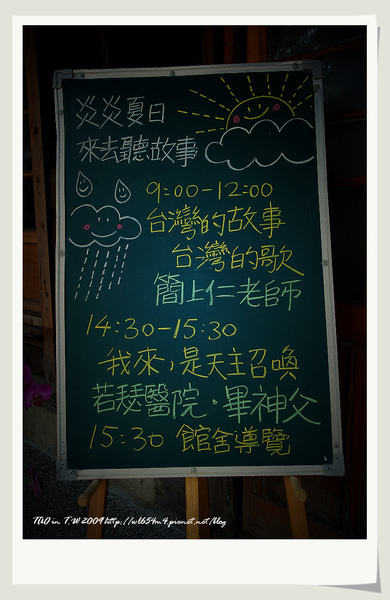 炎炎夏日
來去聽故事
9:00-12:00
台灣的故事
台灣的歌
簡上仁老師
14:30-15:30
我來，是天主召喚
若瑟醫院．畢神父
15:30 館舍導覽
TAO in T.W 2009 http://wl654m.4.pixnet.net/blog